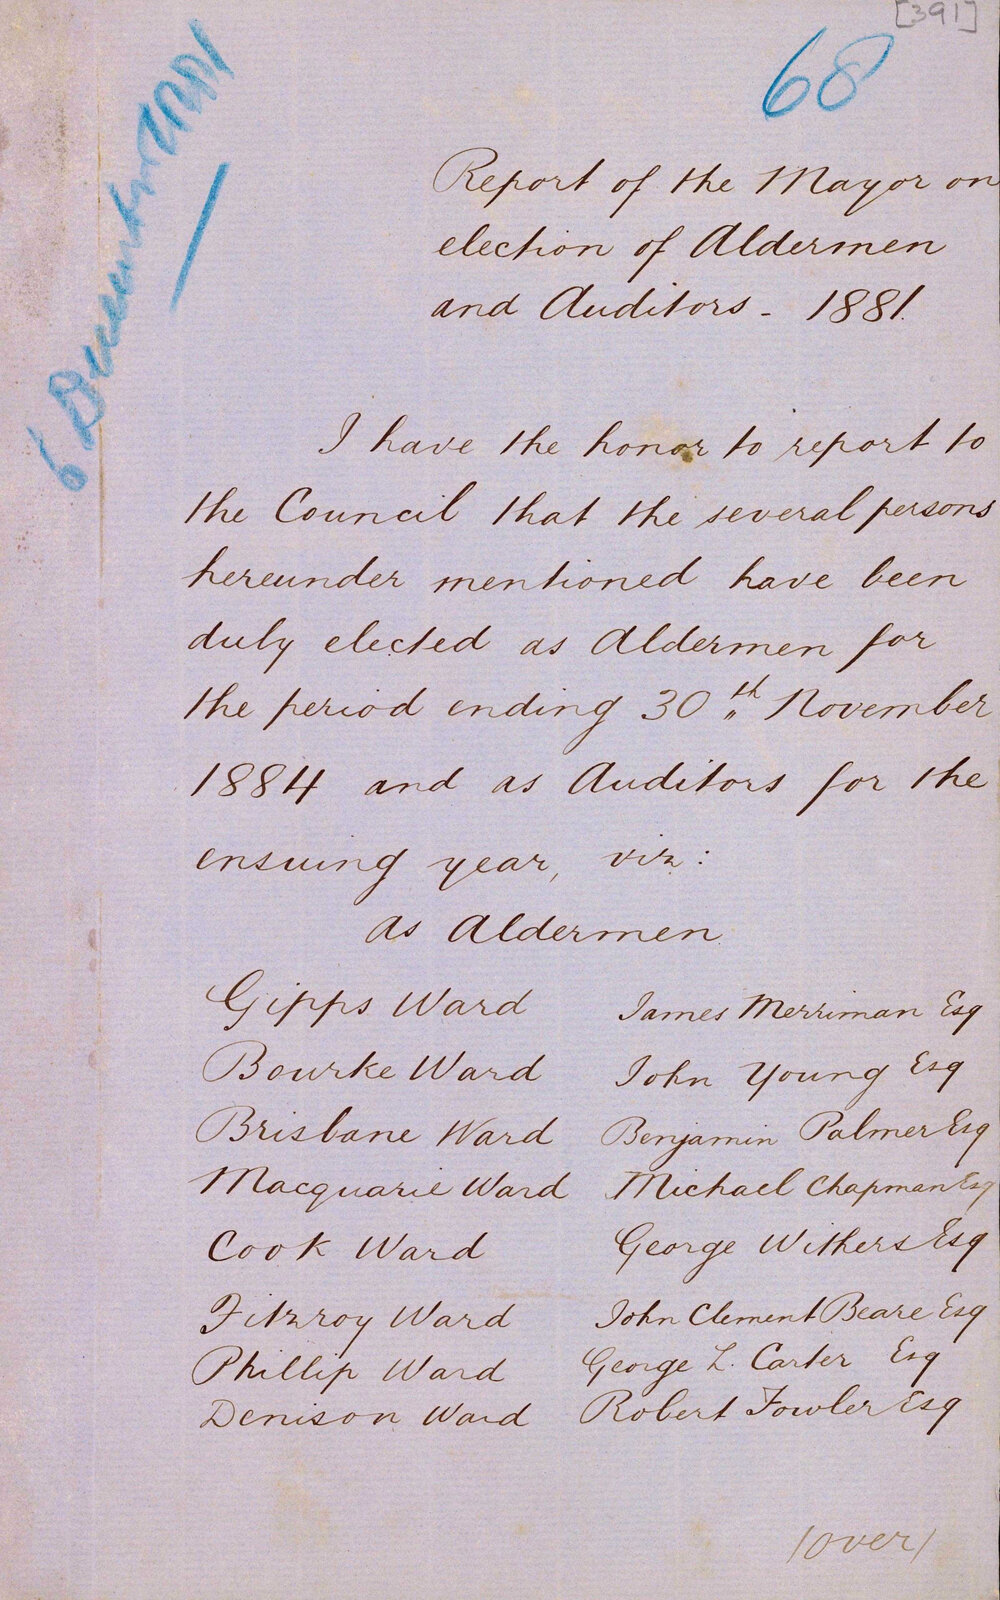 [391]
68
6 December 1881
Report of the Mayor on
election of Aldermen
and Auditors - 1881.
I have the honor to report to
the Council that the several persons
hereunder mentioned have been
duly elected as Aldermen for
the period ending 30th November
1884 and as Auditors for the
ensuing year, viz:
As Aldermen
Gipps Ward James Merriman Esq
Bourke Ward John Young Esq
Brisbane Ward Benjamin Palmer Esq
Macquarie Ward Michael Chapman Esq
Cook Ward George Withers Esq
Fitzroy Ward John Clement Beare Esq
Phillip Ward George L. Carter Esq
Denison Ward Robert Fowler Esq
/over/